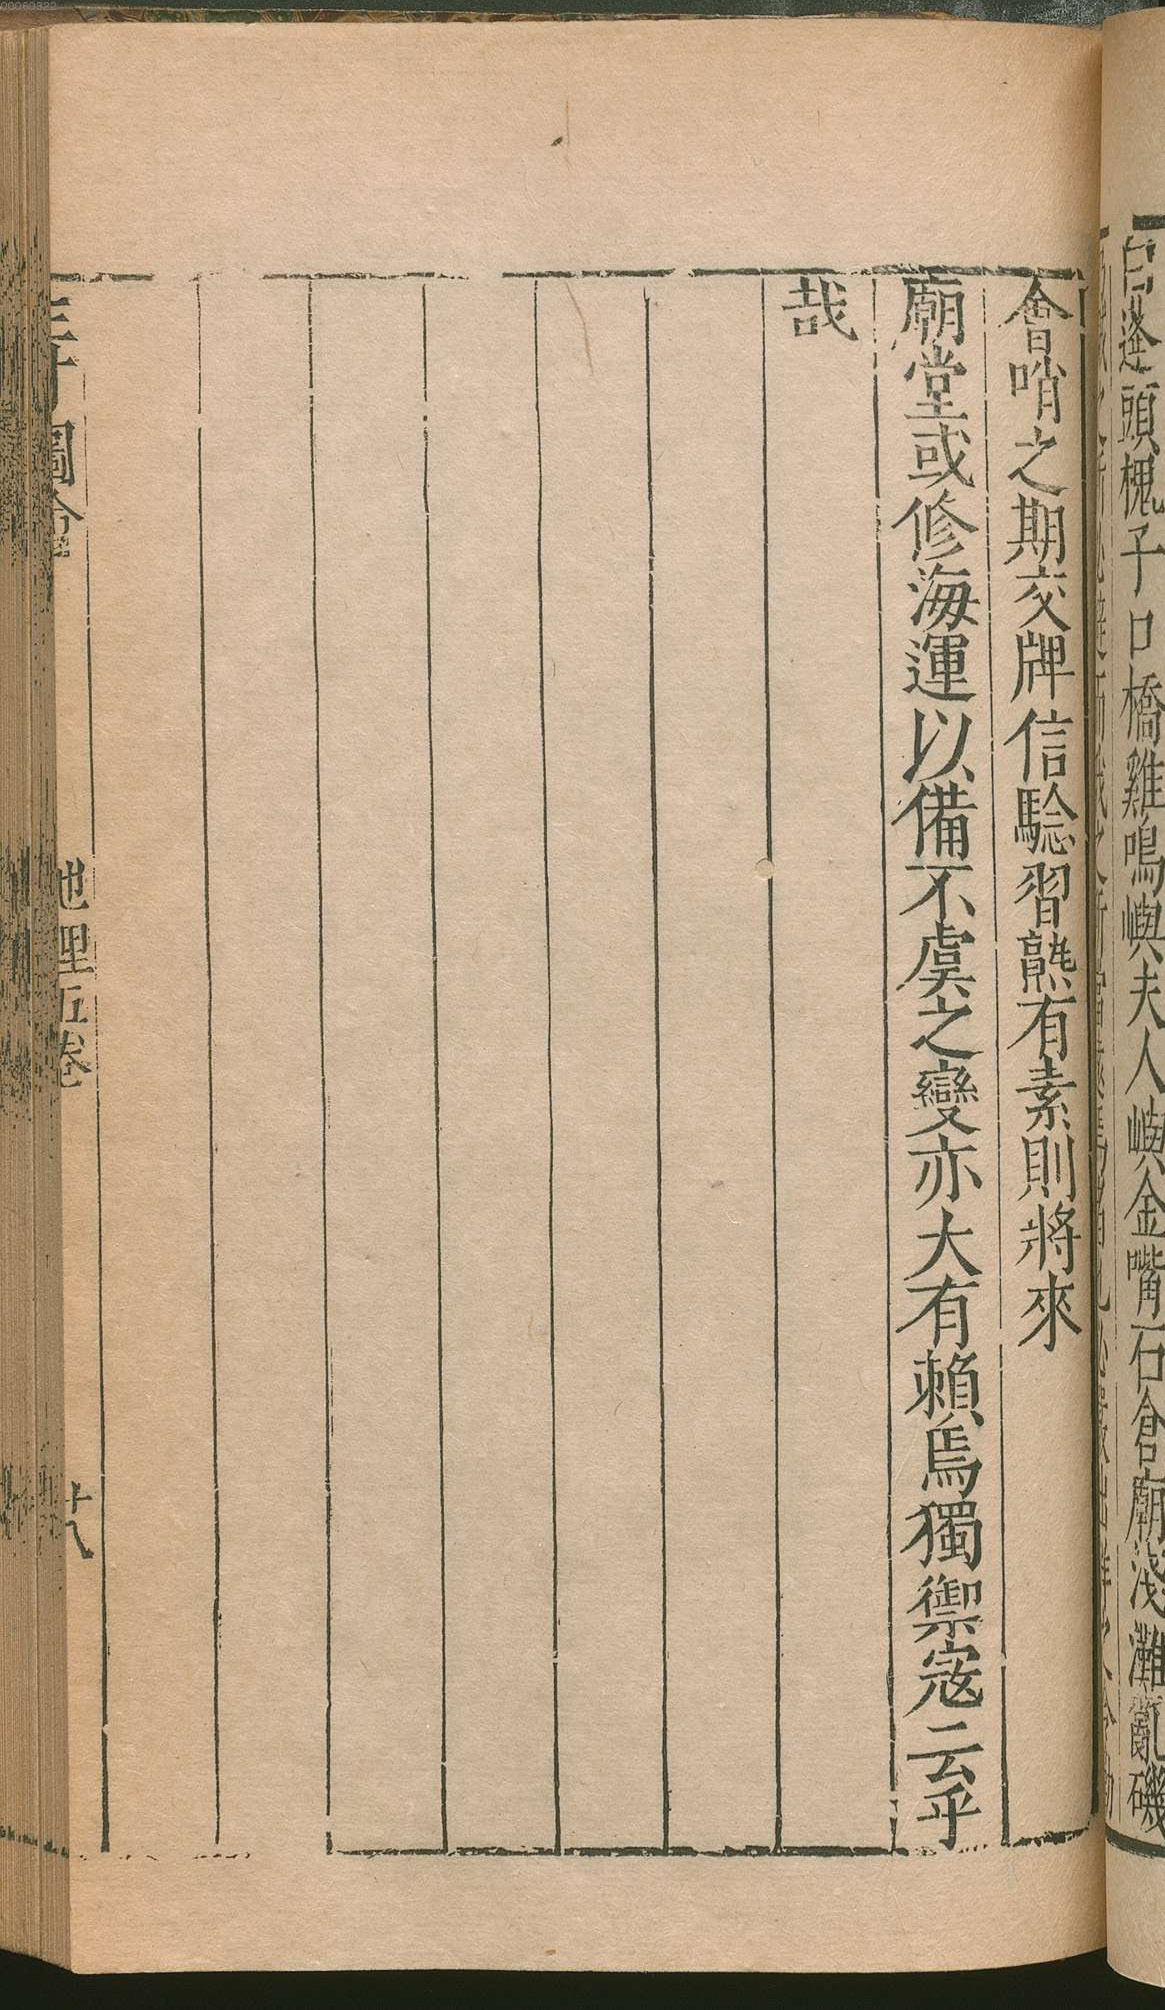 白蓬頭槐子口橋雞鳴嶼夫人嶼金嘴石倉廟淺灘亂磯
會哨之期交牌信騐習熟有素則將來
廟堂或修海運以備不虞之變亦大有賴焉獨禦寇云乎
哉
三才圖會
地理五卷
廿八
00060322